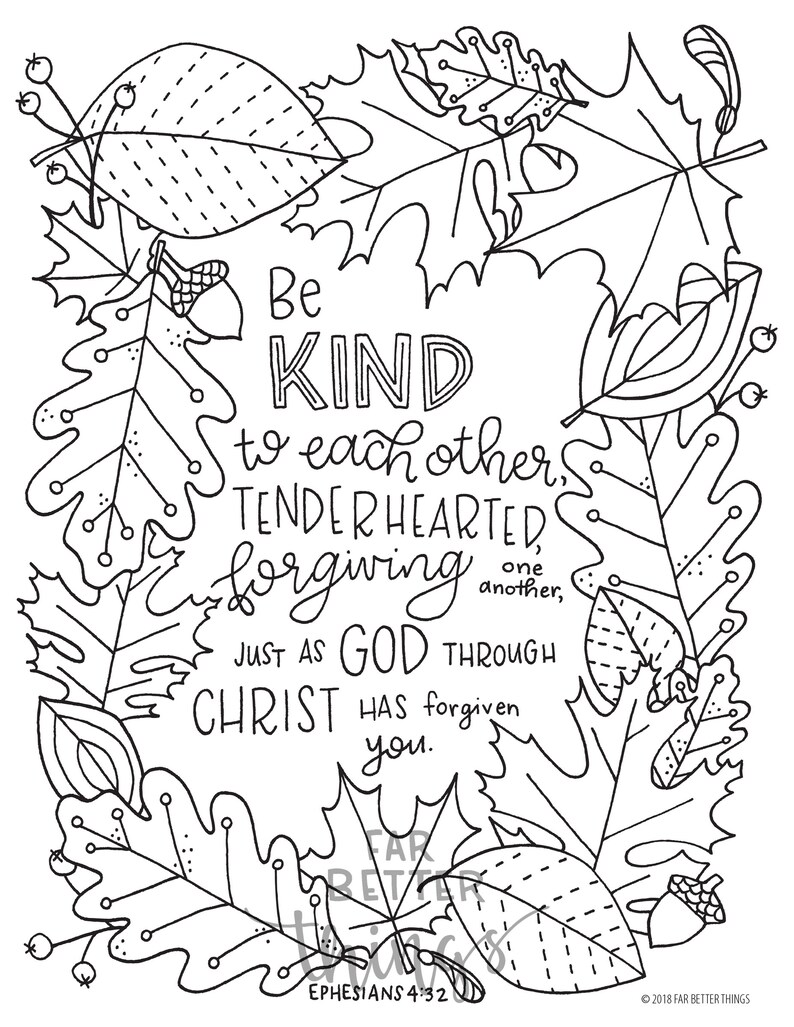 Be
KIND
to each other,
TENDERHEARTED,
forgiving one another,
JUST AS GOD THROUGH
CHRIST HAS forgiven
you.
FAR
BETTER
things
EPHESIANS 4:32
© 2018 FAR BETTER THINGS